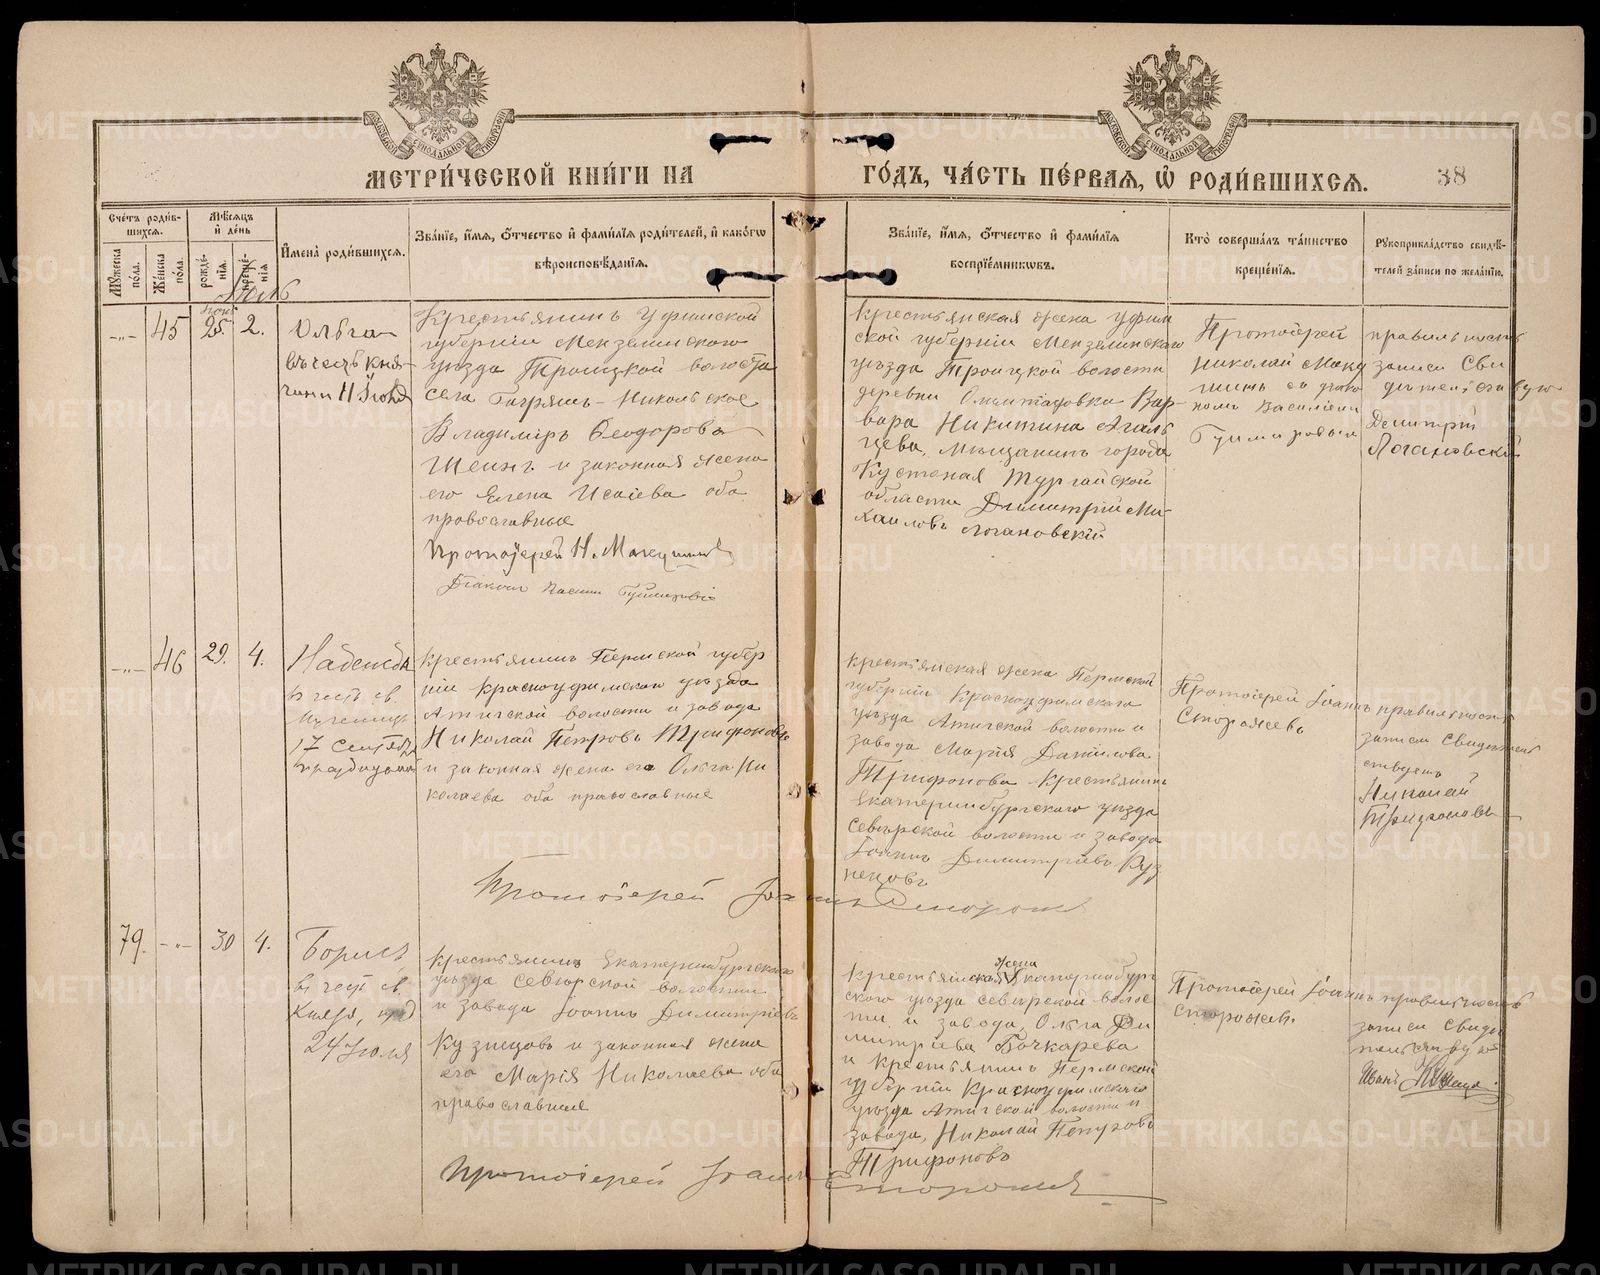 МЕТРИ́ЧЕСКОЙ КНИ́ГИ НА
ГО́ДЪ, ЧА́СТЬ ПЕ́РВАЯ, Ѽ РОДИ́ВШИХСЯ.
38
Сче́тъ роди́в-
шихся.
Мѣ́сяцъ
и҆ де́нь
И҆мена̀ роди́вшихся.
Зва́нїе, и҆́мя, ѻ҆́тчество и҆ фами́лїя роди́телей, и҆ како́гѡ
вѣроисповѣ́данїя.
Зва́нїе, и҆́мя, ѻ҆́тчество и҆ фами́лїя
воспрїе́мниковъ.
Кто̀ соверша́лъ та́инство
креще́нїя.
Рꙋкоприкла́дство свидѣ́-
телей за́писи по жела́нїю.
Мꙋ́жеска
по́ла.
Же́нска
по́ла.
рожде́-
нїя.
креще́-
нїя
Іюль
-"- 45 25. 2.
Ольга
въ честь кня-
гини 11 Іюля
Крестьянинъ Уфимской
губерніи Мензелинского
уѣзда Троицкой волости
села Багряшъ-Никольское
Владиміръ Ѳеодоровъ
Шеинъ и законная жена
его Елена Исаіева оба
православные
Протоіерей Н. Макушинъ
Діаконъ
крестьянская жена Уфим
ской губерніи Мензелинскаго
уѣзда Троицкой волости
деревни Вар-
вара Никитина
мѣщанинъ города
Кустаная Тургайской
области Димитрій Ми-
хаиловъ Логановскій
Протоіерей
Николай Маку
шинъ съ діако
номъ Василіемъ
правильность
записи Сви
дѣтельствую
Дмитрій
Логановскій
-"- 46 29. 4.
Надежда
въ честь св.
Мученицы
17 Сентября
празднуемой
крестьянинъ Пермской губер
ніи Красноуфимскаго уѣзда
Атигской волости и завода
Николай Петровъ Трифоновъ
и законная жена его Ольга Ни
колаева оба православные
крестьянская жена Пермской
губерніи Красноуфимскаго
уѣзда Атигской волости и
завода Марія Данилова
Трифонова Крестьянинъ
Екатеринбургскаго уѣзда
Сѣверской волости и завода
Іоаннъ Димитріевъ Куз
нецовъ
Протоіерей Іоаннъ
Сторожевъ
правильность
записи Свидѣтель
ствуетъ
Николай
Трифоновъ
Протоіерей Іоаннъ Сторожевъ
79. -"- 30 4.
Борисъ
въ честь св.
Князя, праз
24 Іюля
крестьянинъ Екатеринбургского
уѣзда Сѣверской волости
и завода Іоаннъ Димитріевъ
Кузнецовъ и законная жена
его Марія Николаева оба
православные
крестьянская жена Екатеринбург
ского уѣзда Сѣверской волос
ти и завода, Ольга Ди
митріева Бочкарева
и Крестьянинъ Пермской
губерніи Красноуфимскаго
уѣзда Атигской волости и
завода, Николай Петровъ
Трифоновъ
Протоіерей Іоаннъ
Сторожевъ.
правильность
записи Свидѣ
тельствую
Иванъ Кузнецовъ
Протоіерей Іоаннъ Сторожевъ
METRIKI.GASO-URAL.RU